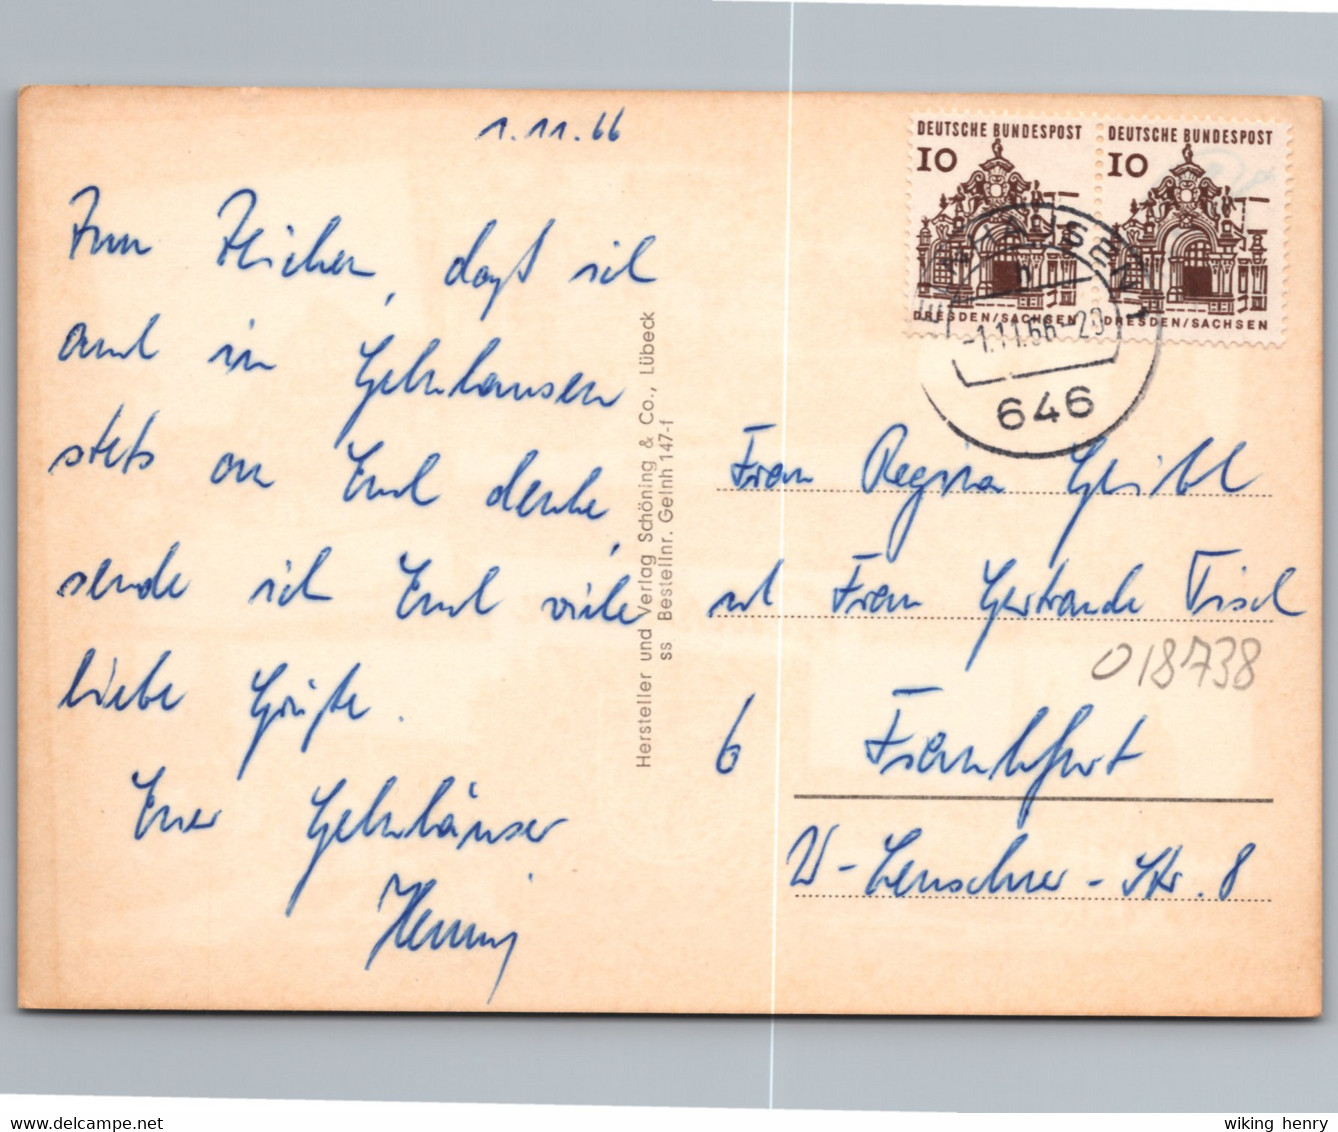 1.11.66
Zum Zeichen, daß ich
auch in Gelnhausen
stets an Euch denke,
sende ich Euch viele
liebe Grüße.
Euer Gelnhäuser
Henning
Hersteller und Verlag Schöning & Co., Lübeck
ss Bestellnr. Gelnh 147-f
DEUTSCHE BUNDESPOST
10
DRESDEN/SACHSEN
DEUTSCHE BUNDESPOST
10
DRESDEN/SACHSEN
GELNHAUSEN 1
h
-1.11.66-20
646
Frau Regina
und Frau Gertraude Tisch
018738
6 Frankfurt
W-Leuschner-Str. 8
wiking henry